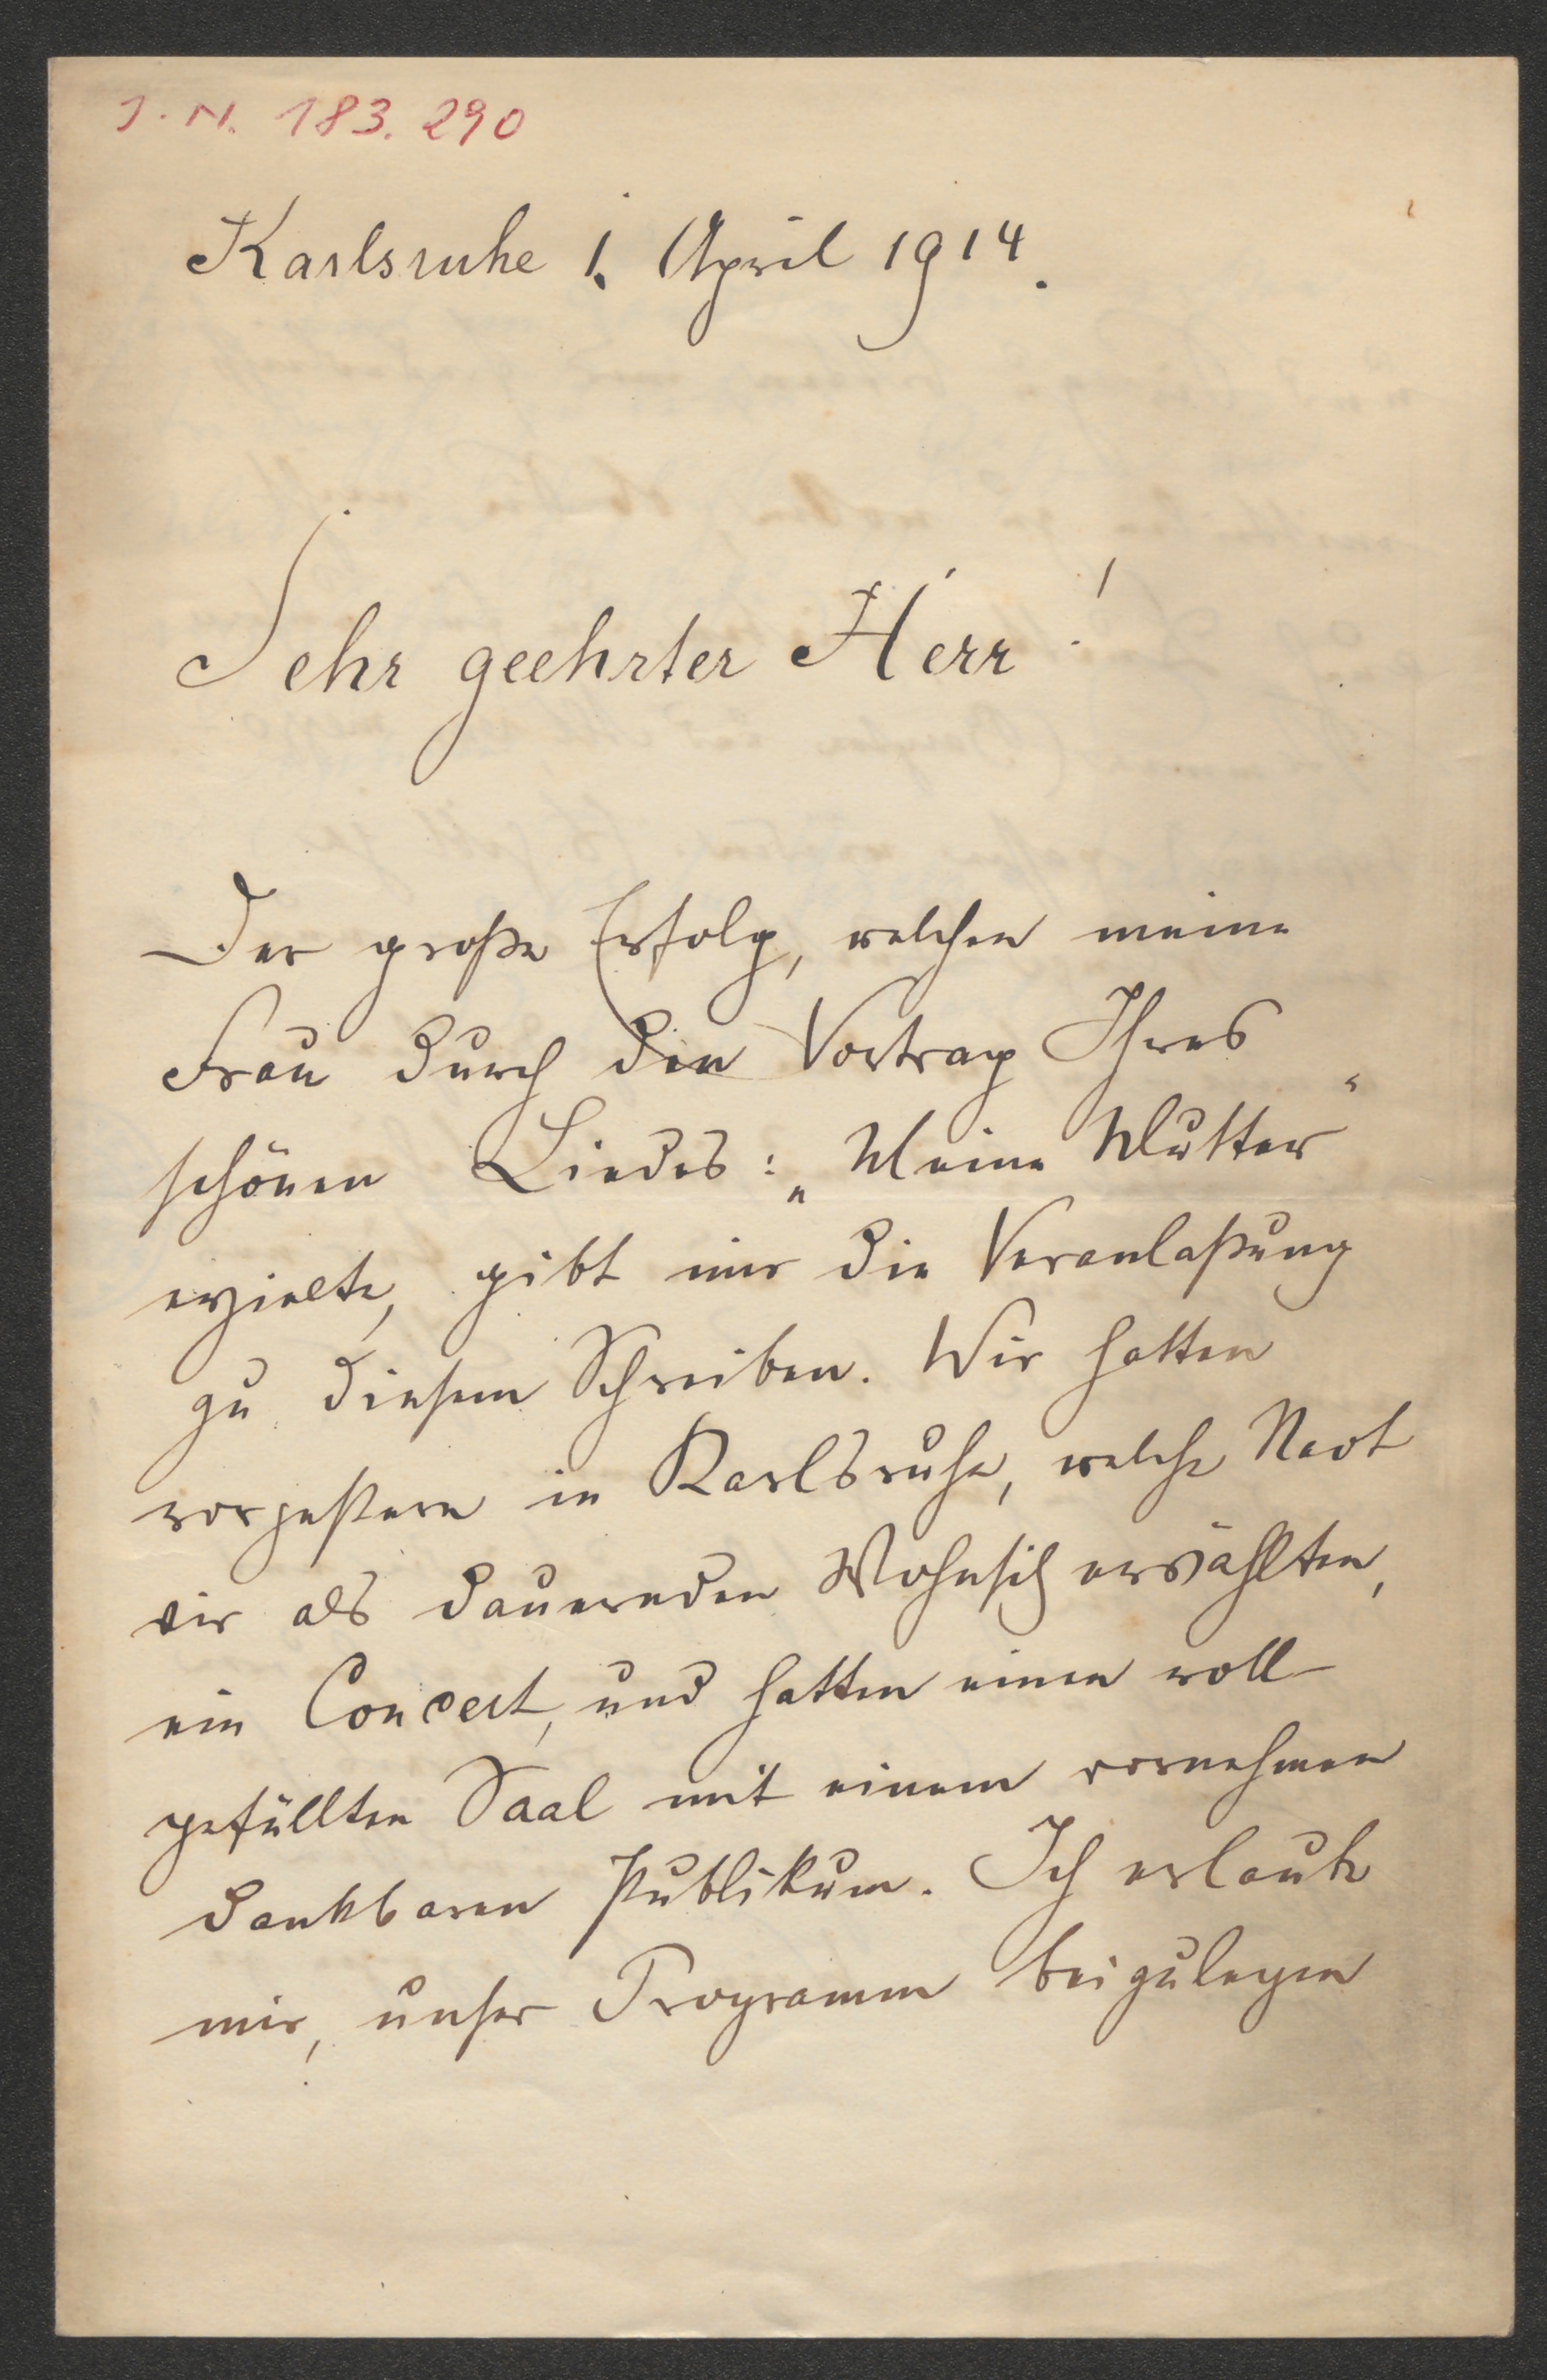 J. N. 183.290
Karlsruhe 1. April 1914.
Sehr geehrter Herr!
Der große Erfolg, welchen meine
Frau durch den Vortrag Ihres
schönen Liedes: „Meine Mutter“
erzielte, gibt mir die Veranlaßung
zu diesem Schreiben. Wir hatten
vorgestern in Karlsruhe, welche Stadt
wir als dauernden Wohnsitz erwählten,
ein Concert, und hatten einen voll-
gefüllten Saal mit einem vornehmen
dankbaren Publikum. Ich erlaube
mir, unser Programm beizulegen